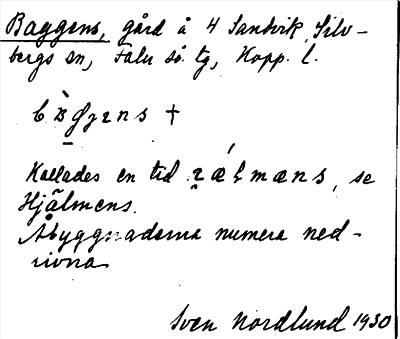 Baggens, gård å 4 Sandvik, Silv-
bergs sn, Falu sö. tg, Kopp. l.
Kallades en tid, se
Hjälmens.
Åbyggnaderna numera ned-
rivna
Sven Nordlund 1930